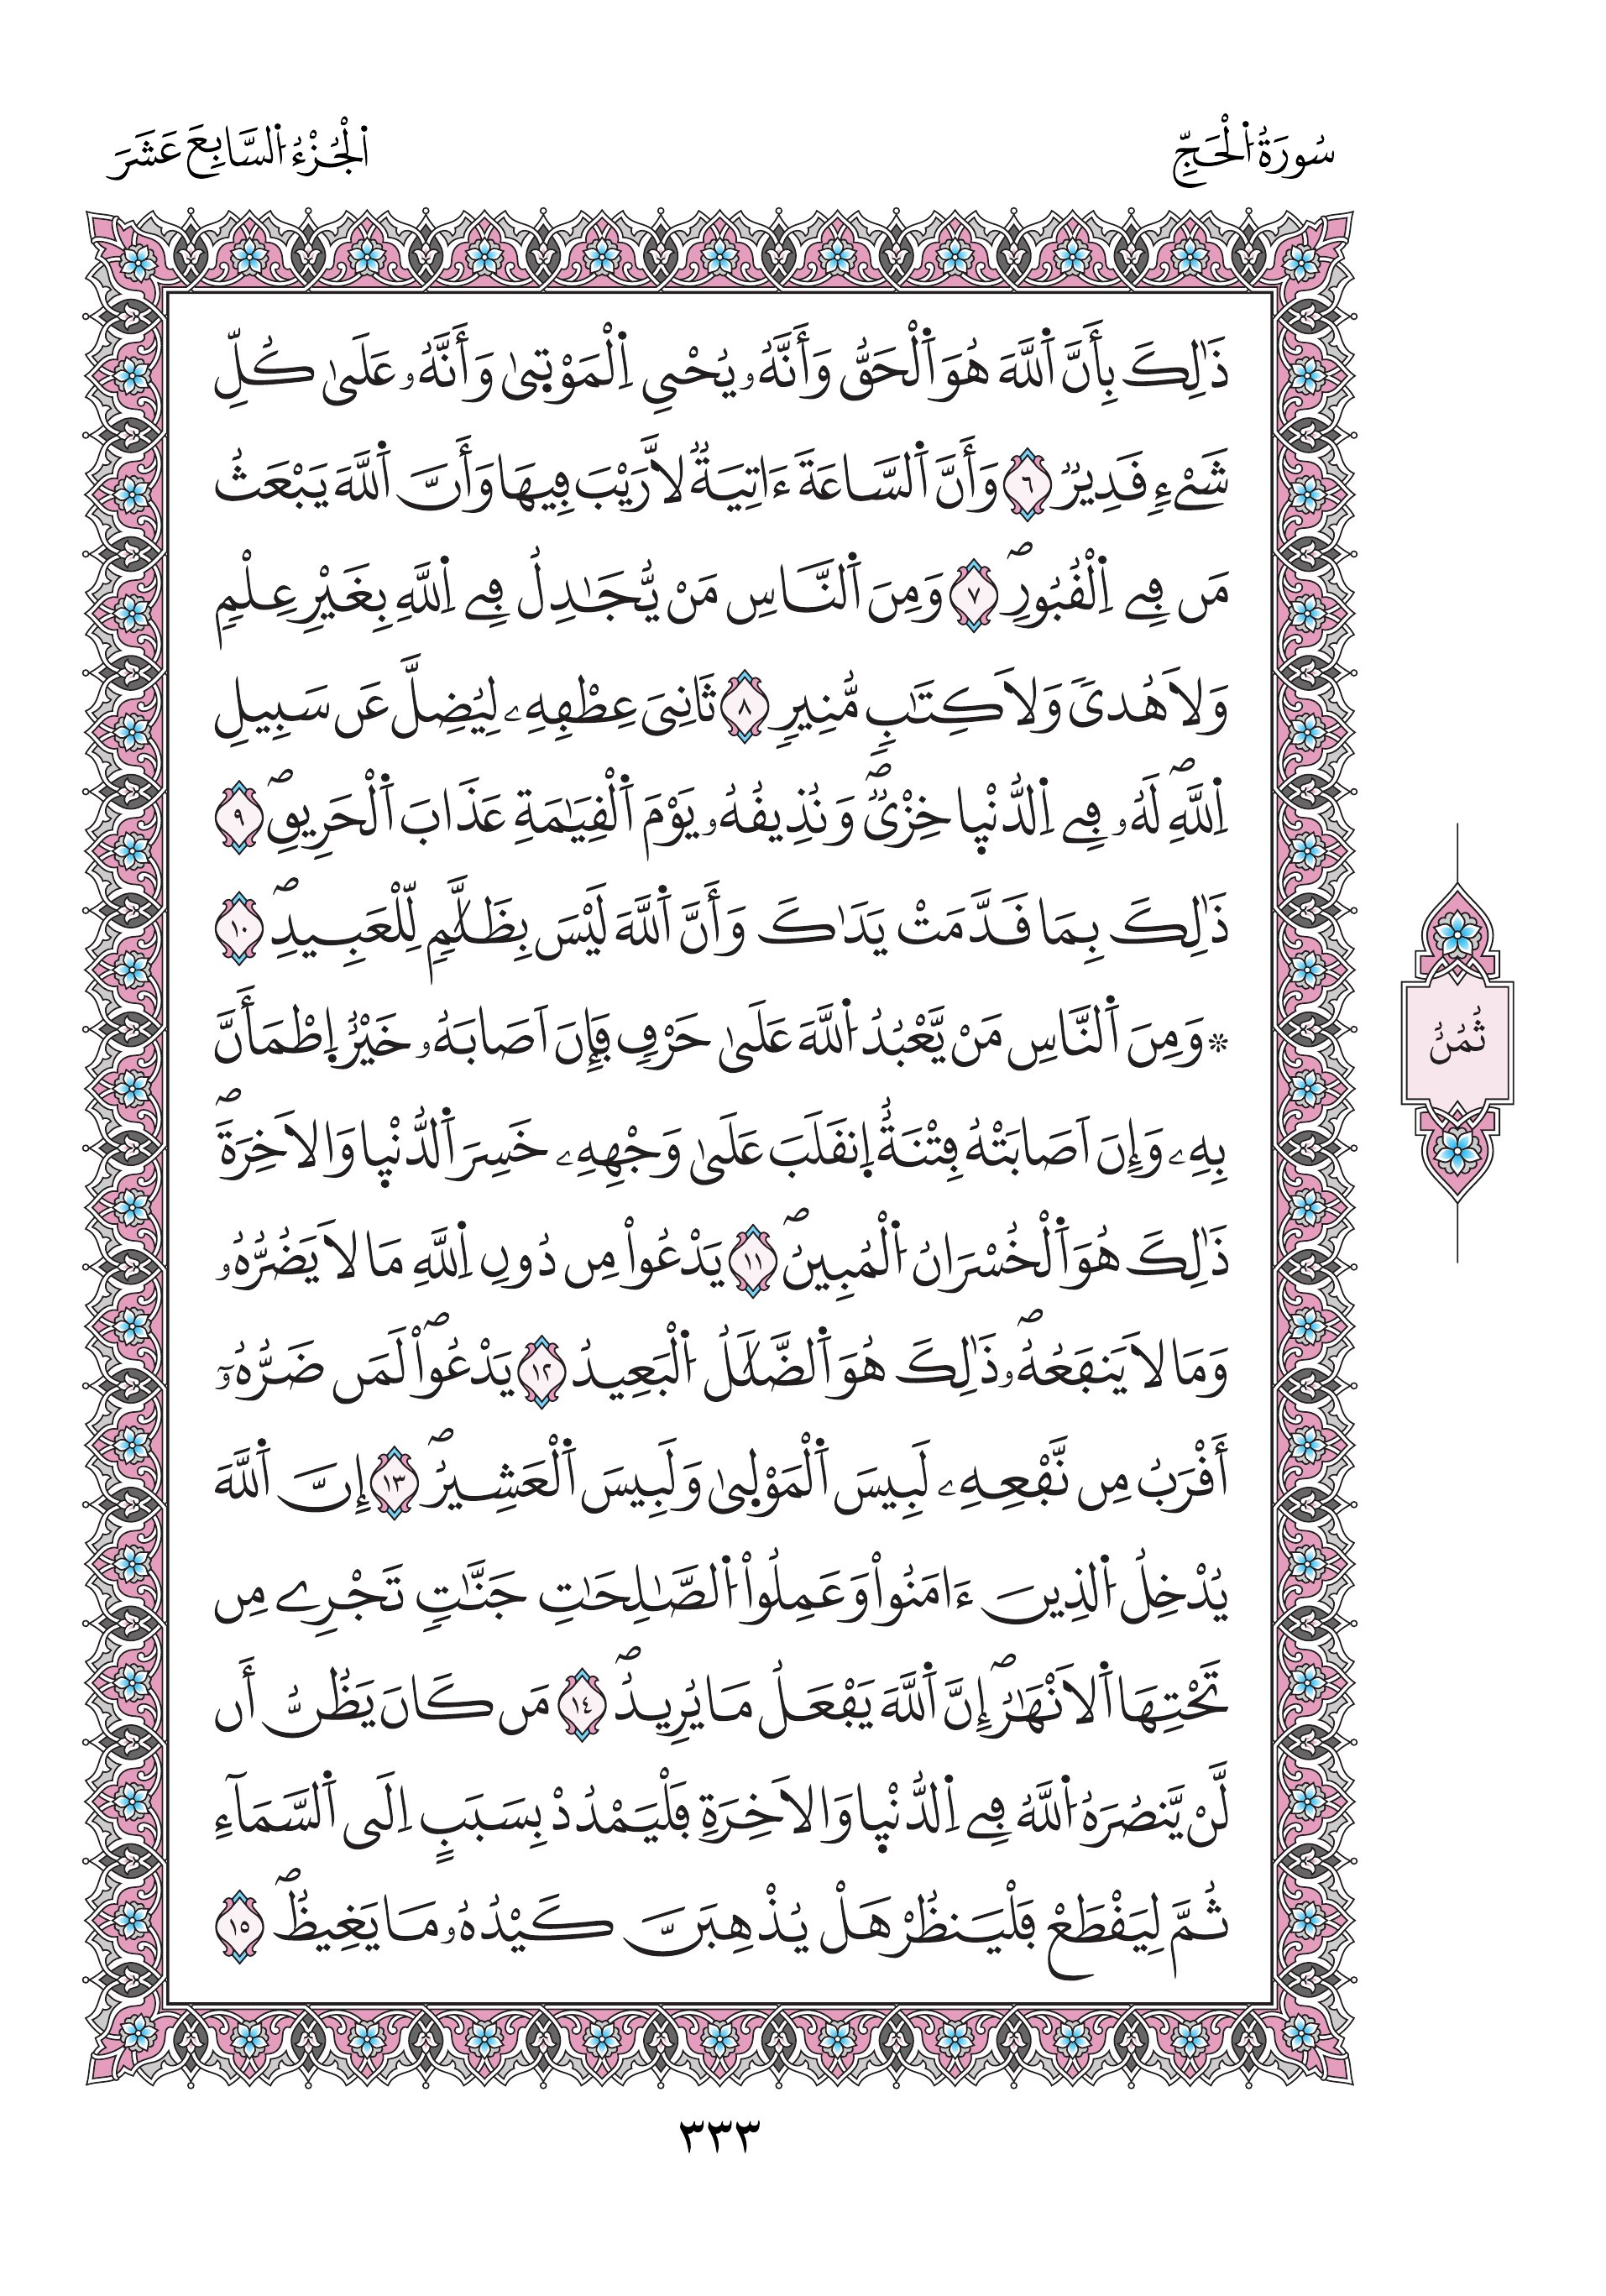 سُورَةُ اُ۬لْحَجِّ
اَ۬لْجُزْءُ اُ۬لسَّابِعَ عَشَرَ
ذَٰلِكَ بِأَنَّ اَ۬للَّهَ هُوَ اَ۬لْحَقُّ وَأَنَّهُۥ يُحْيِ اِ۬لْمَوْت۪ىٰ وَأَنَّهُۥ عَلَىٰ كُلِّ
شَےْءٖ قَدِيرٞ ٦ وَأَنَّ اَ۬لسَّاعَةَ ءَاتِيَةٞ لَّا رَيْبَ فِيهَا وَأَنَّ اَ۬للَّهَ يَبْعَثُ
مَن فِے اِ۬لْقُبُورِۖ ٧ وَمِنَ اَ۬لنَّاسِ مَنْ يُّجَٰدِلُ فِے اِ۬للَّهِ بِغَيْرِ عِلْمٖ
وَلَا هُدىٗ وَلَا كِتَٰبٖ مُّنِيرٖ ٨ ثَانِيَ عِطْفِهِۦ لِيُضِلَّ عَن سَبِيلِ
اِ۬للَّهِۖ لَهُۥ فِے اِ۬لدُّنْي۪ا خِزْيٞۖ وَنُذِيقُهُۥ يَوْمَ اَ۬لْقِيَٰمَةِ عَذَابَ اَ۬لْحَرِيقِۖ ٩
ذَٰلِكَ بِمَا قَدَّمَتْ يَدَٰكَ وَأَنَّ اَ۬للَّهَ لَيْسَ بِظَلَّٰمٖ لِّلْعَبِيدِۖ ١٠
۞ وَمِنَ اَ۬لنَّاسِ مَنْ يَّعْبُدُ اُ۬للَّهَ عَلَىٰ حَرْفٖ فَإِنَ اَصَابَهُۥ خَيْرٌ اِ۪طْمَأَنَّ
بِهِۦ وَإِنَ اَصَابَتْهُ فِتْنَةٌ اِ۪نقَلَبَ عَلَىٰ وَجْهِهِۦ خَسِرَ اَ۬لدُّنْي۪ا وَالَاخِرَةَۖ
ذَٰلِكَ هُوَ اَ۬لْخُسْرَانُ اُ۬لْمُبِينُۖ ١١ يَدْعُواْ مِن دُونِ اِ۬للَّهِ مَا لَا يَضُرُّهُۥ
وَمَا لَا يَنفَعُهُۥۖ ذَٰلِكَ هُوَ اَ۬لضَّلَٰلُ اُ۬لْبَعِيدُ ١٢ يَدْعُواْۖ لَمَن ضَرُّهُۥٓ
أَقْرَبُ مِن نَّفْعِهِۦ لَبِيسَ اَ۬لْمَوْل۪ىٰ وَلَبِيسَ اَ۬لْعَشِيرُۖ ١٣ إِنَّ اَ۬للَّهَ
يُدْخِلُ اُ۬لذِينَ ءَامَنُواْ وَعَمِلُواْ اُ۬لصَّٰلِحَٰتِ جَنَّٰتٖ تَجْرِے مِن
تَحْتِهَا اَ۬لَانْهَٰرُۖ إِنَّ اَ۬للَّهَ يَفْعَلُ مَا يُرِيدُۖ ١٤ مَن كَانَ يَظُنُّ أَن
لَّنْ يَّنصُرَهُ اُ۬للَّهُ فِے اِ۬لدُّنْي۪ا وَالَاخِرَةِ فَلْيَمْدُدْ بِسَبَبٍ اِلَى اَ۬لسَّمَآءِ
ثُمَّ لِيَقْطَعْ فَلْيَنظُرْ هَلْ يُذْهِبَنَّ كَيْدُهُۥ مَا يَغِيظُۖ ١٥
ثُمُنُ
٣٣٣